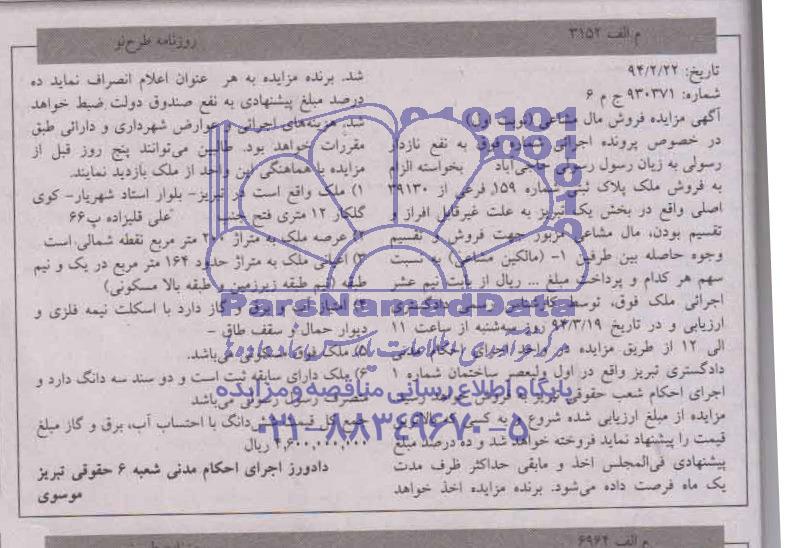 م الف ۳۱۵۲
روزنامه طرح‌نو
تاریخ: ۹۴/۲/۲۲
شماره: ۹۳۰۳۷۱ ج م ۶
آگهی مزایده فروش مال مشاعی (نوبت اول)
در خصوص پرونده اجرائی شماره فوق به نفع نازدار
رسولی به زیان رسول رسولی حاجی‌آباد بخواسته الزام
به فروش ملک پلاک ثبتی شماره ۱۵۹ فرعی از ۳۹۱۳۰
اصلی واقع در بخش یک تبریز به علت غیرقابل افراز و
تقسیم بودن، مال مشاعی مزبور جهت فروش و تقسیم
وجوه حاصله بین طرفین ۱- (مالکین مشاعی) به نسبت
سهم هر کدام و پرداخت مبلغ ... ریال از بابت نیم عشر
اجرائی ملک فوق، توسط کارشناس رسمی دادگستری
ارزیابی و در تاریخ ۹۴/۳/۱۹ روز سه‌شنبه از ساعت ۱۱
الی ۱۲ از طریق مزایده در واحد اجرای احکام مدنی
دادگستری تبریز واقع در اول ولیعصر ساختمان شماره ۱
اجرای احکام شعب حقوقی تبریز به فروش خواهد رسید
مزایده از مبلغ ارزیابی شده شروع و به کسی که بالاترین
قیمت را پیشنهاد نماید فروخته خواهد شد و ده درصد مبلغ
پیشنهادی فی‌المجلس اخذ و مابقی حداکثر ظرف مدت
یک ماه فرصت داده می‌شود. برنده مزایده اخذ خواهد
شد. برنده مزایده به هر عنوان اعلام انصراف نماید ده
درصد مبلغ پیشنهادی به نفع صندوق دولت ضبط خواهد
شد. هزینه‌های اجرائی و عوارض شهرداری و دارائی طبق
مقررات خواهد بود. طالبین می‌توانند پنج روز قبل از
مزایده با هماهنگی این واحد از ملک بازدید نمایند.
۱) ملک واقع است در تبریز- بلوار استاد شهریار- کوی
گلکار ۱۲ متری فتح جنب علی قلیزاده پ۶۶
۲) عرصه ملک به متراژ ۲۰۰ متر مربع نقطه شمالی است
۳) اعیانی ملک به متراژ حدود ۱۶۴ متر مربع در یک و نیم
طبقه (نیم طبقه زیرزمین و طبقه بالا مسکونی)
۴) امتیاز آب و برق و گاز دارد با اسکلت نیمه فلزی و
دیوار حمال و سقف طاق -
۵) ملک فوق مسکونی می‌باشد.
۶) ملک دارای سابقه ثبت است و دو سند سه دانگ دارد و
متصرف رسول رسولی می‌باشد
جمع کل قیمت شش دانگ با احتساب آب، برق و گاز مبلغ
۲,۶۰۰,۰۰۰,۰۰۰ ریال
دادورز اجرای احکام مدنی شعبه ۶ حقوقی تبریز
موسوی
ParsNamadData
مرکز فرآوری اطلاعات پارس نماد داده‌ها
پایگاه اطلاع رسانی مناقصه و مزایده
۰۲۱-۸۸۳۴۹۶۷۰-۵
م الف ۶۹۶۴